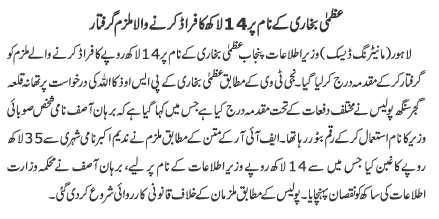 عظمیٰ بخاری کے نام پر 14 لاکھ کا فراڈ کرنے والا ملزم گرفتار
لاہور (مانیٹرنگ ڈیسک) وزیر اطلاعات پنجاب عظمیٰ بخاری کے نام پر 14 لاکھ روپے کا فراڈ کرنے والے ملزم کو
گرفتار کر کے مقدمہ درج کر لیا گیا۔ نجی ٹی وی کے مطابق عظمیٰ بخاری کے پی ایس او ذکا اللہ کی درخواست پر تھانہ قلعہ
گجر سنگھ پولیس نے مختلف دفعات کے تحت مقدمہ درج کیا ہے جس میں کہا گیا ہے کہ برہان آصف نامی شخص صوبائی
وزیر کا نام استعمال کر کے رقم بٹور رہا تھا۔ ایف آئی آر کے متن کے مطابق ملزم نے ندیم اکبر نامی شہری سے 35 لاکھ
روپے کا غبن کیا جس میں سے 14 لاکھ روپے وزیر اطلاعات کے نام پر لیے، برہان آصف نے محکمہ وزارت
اطلاعات کی ساکھ کو نقصان پہنچایا۔ پولیس کے مطابق ملزمان کے خلاف قانونی کارروائی شروع کر دی گئی۔